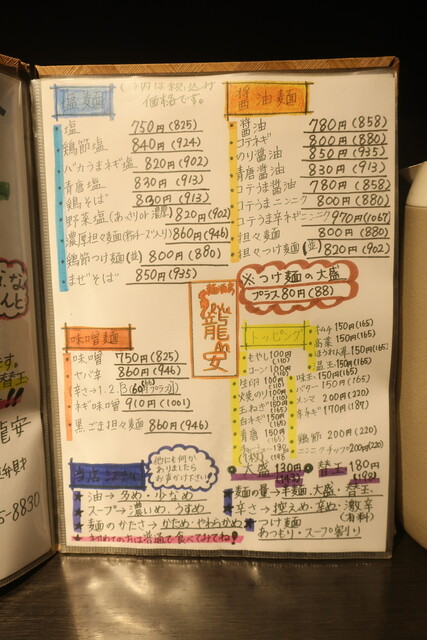 ( )内は税込み
価格です。
塩麺
塩 750円(825)
鶏節塩 840円(924)
バカうまネギ塩 820円(902)
青唐塩 830円(913)
鶏そば 830円(913)
野菜塩(あっさりor濃厚) 820円(902)
濃厚担々麺(粉チーズ入り) 860円(946)
鶏節つけ麺(並) 800円(880)
まぜそば 850円(935)
醤油麺
醤油 780円(858)
コテネギ 800円(880)
のり醤油 850円(935)
青唐醤油 830円(913)
コテうま醤油 780円(858)
コテうまニンニク 800円(880)
コテうま辛ネギニンニク 970円(1067)
担々麺 800円(880)
担々つけ麺(並) 820円(902)
※つけ麺の大盛
プラス80円(88)
龍安
味噌麺
味噌 750円(825)
ヤバ辛 860円(946)
辛さ→1.2.3
ネギ味噌 910円(1001)
黒ごま担々麺 860円(946)
トッピング
もやし 100円(110)
コーン 100円(110)
生のり 100円
焼のり 100円
玉ねぎ 150円
白ネギ 150円
青唐 150円
チャーシュー(1枚) 180円
キムチ 150円(165)
高菜 150円(165)
ほうれん草 150円(165)
味玉 150円(165)
バター 150円(165)
メンマ 200円(220)
辛ネギ 170円(187)
鶏節 200円(220)
ニンニクチップ 200円(220)
大盛 130円(143) 替玉 180円(198)
他にも何か
ありましたら
お声がけ下さい!
★油→多め・少なめ
★スープ→濃いめ、うすめ
★麺のかたさ→かため・やわらかめ
★初めての方は普通で食べてみてね!
★麺の量→半麺、大盛、替玉
★辛さ→控えめ・辛め・激辛
(有料)
★つけ麺
あつもり・スープ割り
龍安
5-8830